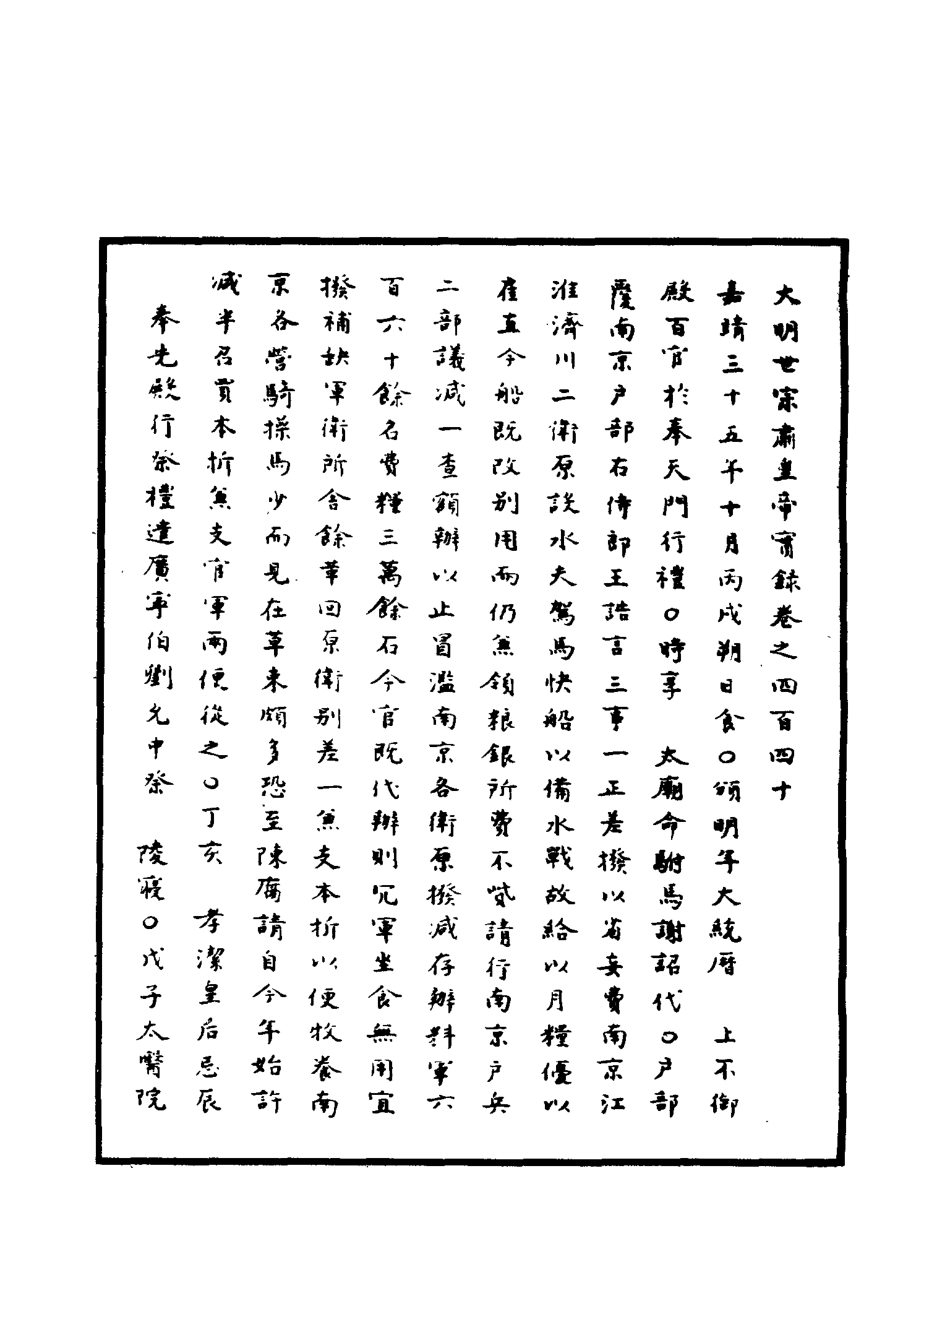 大明世宗肅皇帝實錄卷之四百四十
嘉靖三十五年十月丙戌朔日食○頒明年大統曆　上不御
殿百官於奉天門行禮○時享　太廟命駙馬謝詔代○戶部
覆南京戶部右侍郎王誥言三事一正差撥以省妄費南京江
淮濟川二衛原設水夫駕馬快船以備水戰故給以月糧優以
雇直今船既改別用而仍無領粮銀所費不貲請行南京戶兵
二部議減一查額辦以止冒濫南京各衛原撥減存辦料軍六
百六十餘名費糧三萬餘石今官既代辦則冗軍坐食無用宜
撥補缺軍衛所舍餘革回原衛別差一兼支本折以便牧養南
京各營騎操馬少而見在草束頗多恐至陳腐請自今年始許
減半召買本折兼支官軍兩便從之○丁亥　孝潔皇后忌辰
奉先殿行祭禮遣廣寧伯劉允中祭　陵寢○戊子太醫院